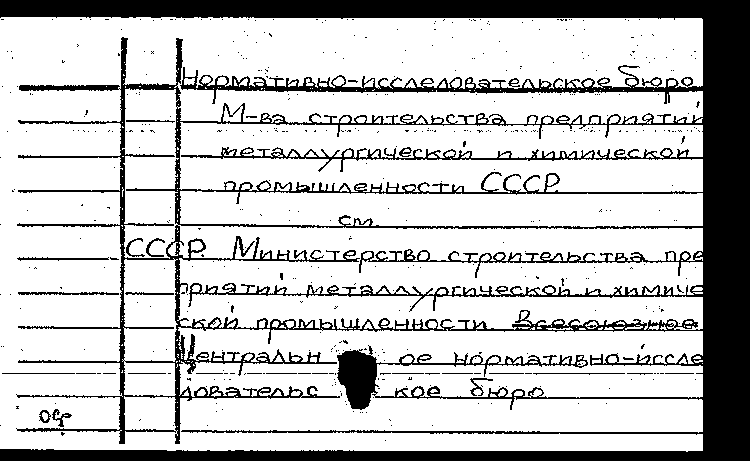 Нормативно-исследовательское бюро
М-ва строительства предприятий
металлургической и химической
промышленности СССР.
см.
СССР. Министерство строительства пре
приятий металлургической и химиче
ской промышленности. Всесоюзное
Центральн ое нормативно-иссле
довательс кое бюро